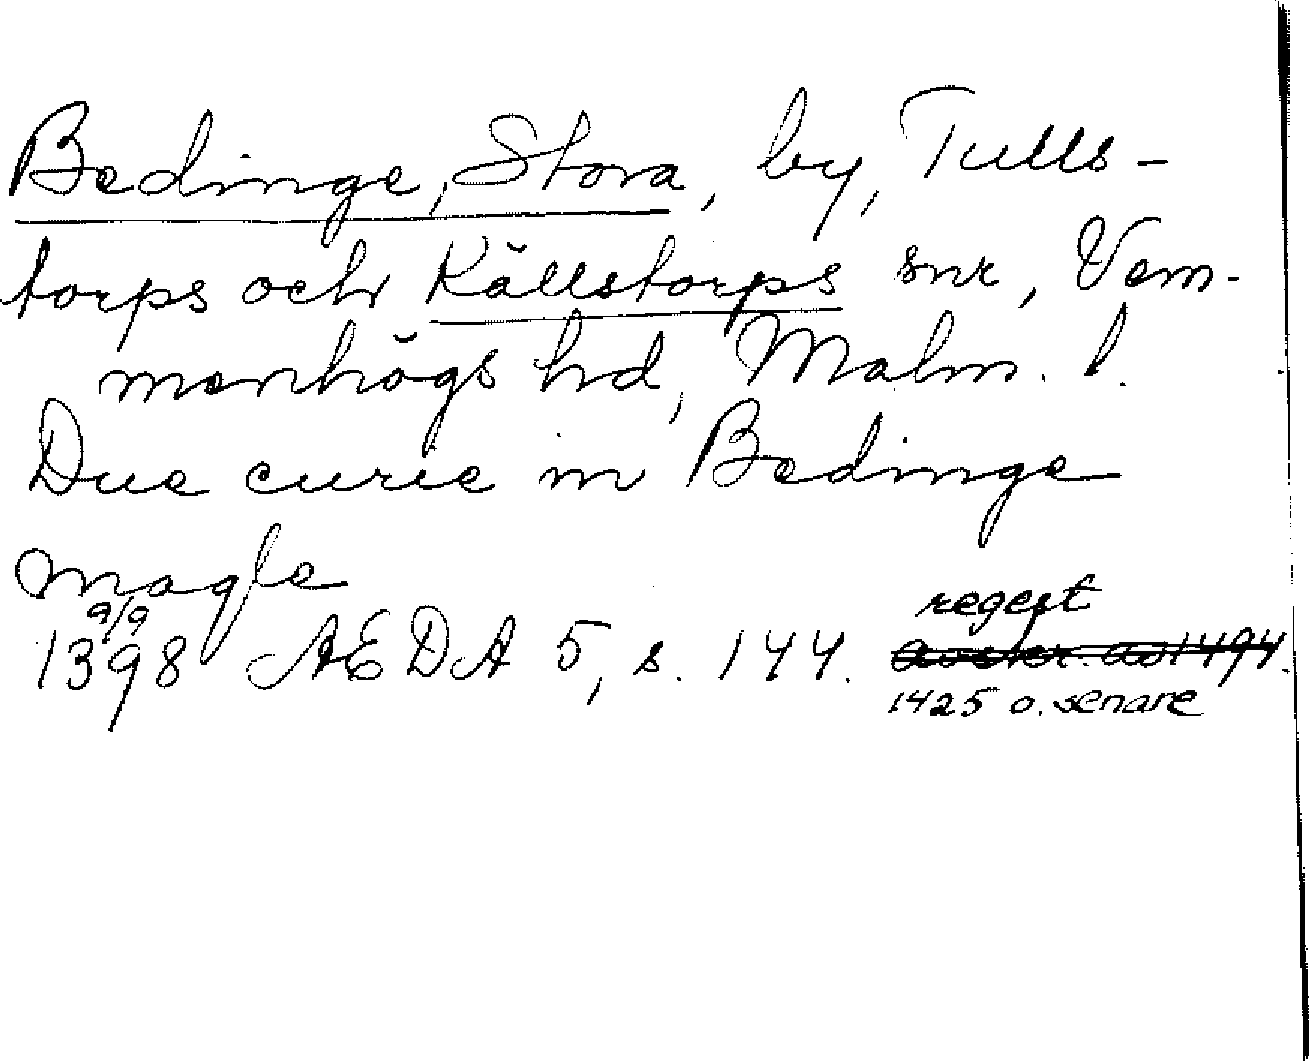 Bedinge, Stora, by, Tulls-
torps och Källstorps snr, Vem-
menhögs hd, Malm. l.
Due curie in Bedinge
magle
9/9
1398 AEDA 5, s. 144. regest
avskr. av 1494.
1425 o. senare